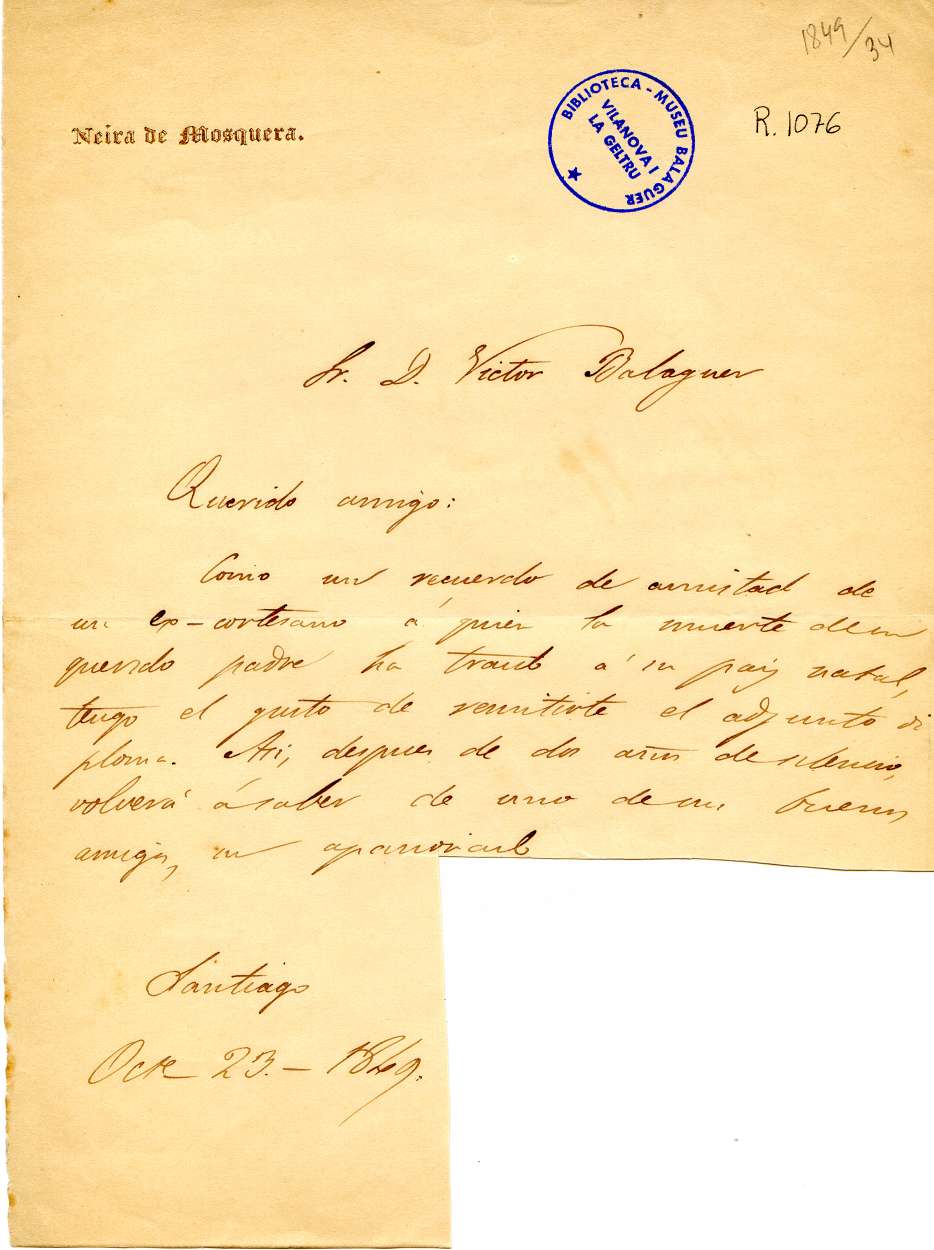 1849/34
Neira de Mosquera.
BIBLIOTECA - MUSEU BALAGUER
VILANOVA I
LA GELTRU
R. 1076
Sr. D. Victor Balaguer
Querido amigo:
Como un recuerdo de amistad de
un ex-cortesano á quien la muerte de un
querido padre ha traido á su pais natal,
tengo el gusto de remitirte el adjunto di
ploma. Asi, despues de dos años de silencio,
volverá á saber de uno de sus buenos
amigos, su apasionado
Santiago
Octe 23. - 1849.